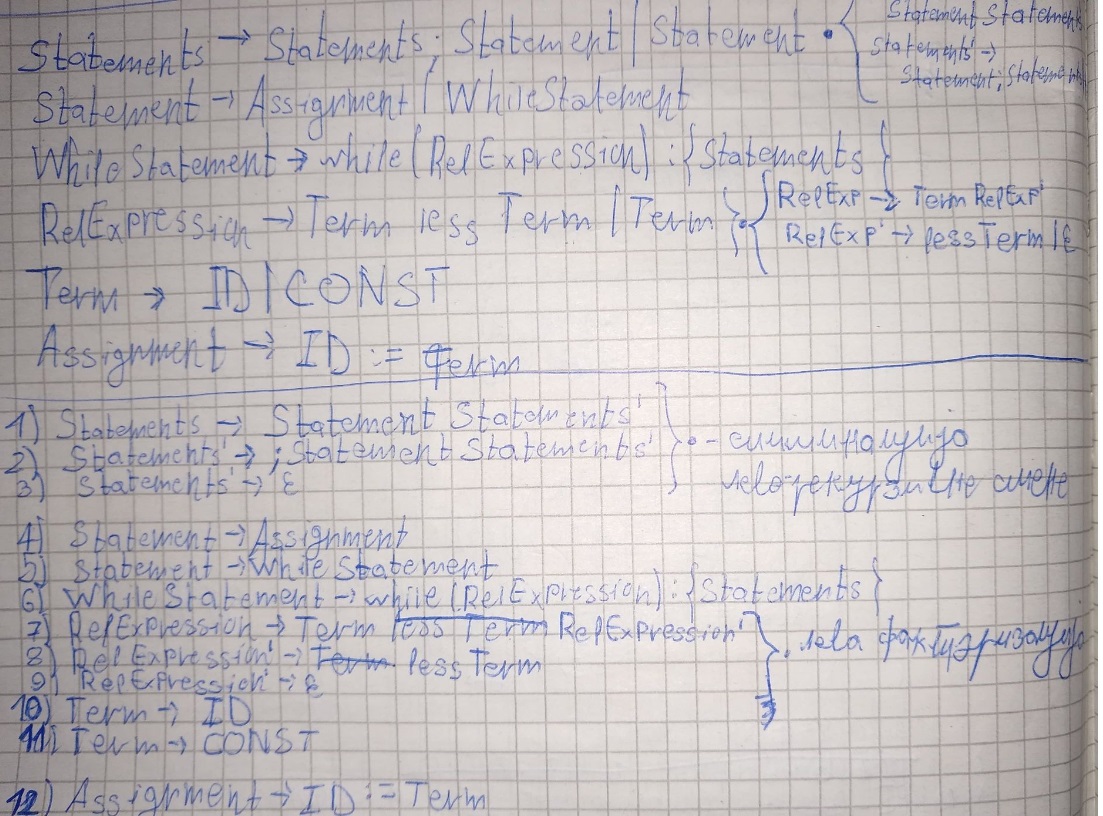 Statements → Statements; Statement | Statement • { Statement Statement
Statements' →
Statement; Statement
Statement → Assignment | WhileStatement
WhileStatement → while (RelExpression) : {Statements}
RelExpression → Term less Term | Term } • { RelExp → Term RelExp'
RelExp' → less Term | ε
Term → ID | CONST
Assignment → ID := Term
1) Statements → Statement Statements'
2) Statements' → ; Statement Statements'
3) Statements' → ε
4) Statement → Assignment
5) Statement → While Statement
6) WhileStatement → while (RelExpression) : {Statements}
7) RelExpression → Term less Term RelExpression'
8) RelExpression' → Term less Term
9) RelExpression' → ε
лева
10) Term → ID
11) Term → CONST
12) Assignment → ID := Term